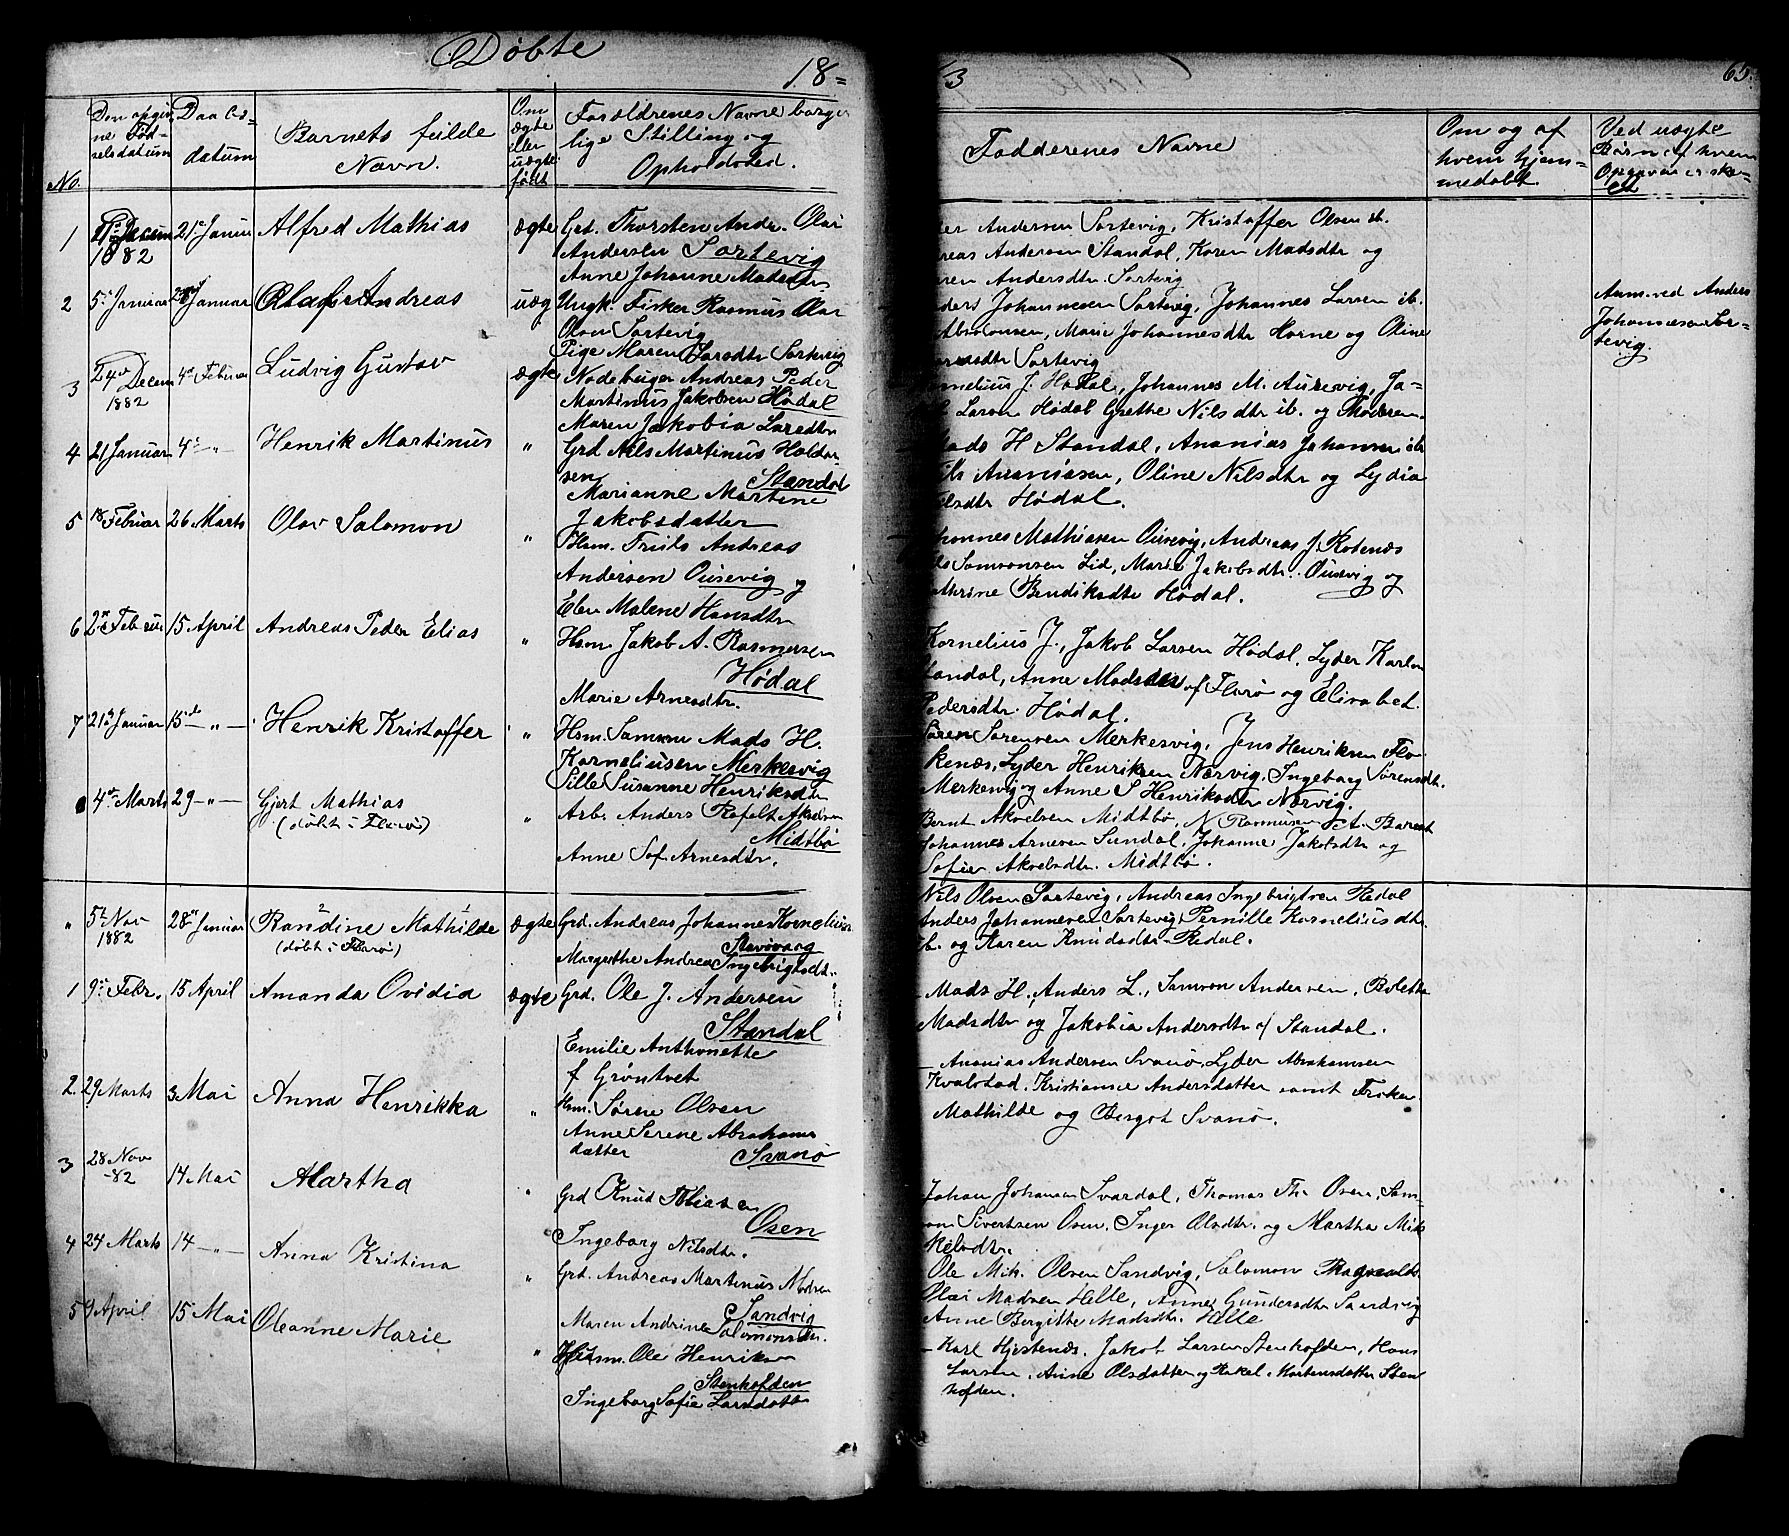 Døbte
18=
3
65.
No.
Den opgiv
ne Fød-
selsdatum
Daabs-
datum
Barnets fulde
Navn.
Om
ægte
eller
uægte
født
Forældrenes Navne borger
lige Stilling og
Opholdsted.
Fadderenes Navne
Om og af
hvem hjem-
medøbt.
Ved uægte
Børn af hvem
Opgaven er ske-
et
1 Decem 1882 21 Januar Alfred Mathias ægte Grd. Thorsten Andr. Olai
Andersen Sortevig
Anne Johanne Madsdtr
Andersen Sortevig, Kristoffer Olsen ib.
Andersen Standal, Karen Madsdtr og
Andersdtr. Sortevig
2 5 Januar Januar Andreas uæg Ungk. Fisker Rasmus Olai
Olsen Sortevig
Pige Maren Larsdtr Sortevig
Johannesen Sortevig, Johannes Larsen ib.
Absalonsen, Marie Johannesdtr Horne og Oline
Sortevig
Anm. ved Anders
Johannesen Sor-
tevig.
3 Decem 1882 4 Februar Ludvig Gustav ægte Nodebuger Andreas Peder
Martinus Jakobsen Hødal
Maren Jakobia Larsdtr
J. Hødal, Johannes M. Aurevig, Ja-
Larsen Hødal Grethe Nilsdtr ib. og Moderen.
4 21 Januar 4 -"- Henrik Martinus " Grd Nils Martinus Haldor
sen Standal
Marianne Martine
Jakobsdatter
Mads H Standal, Ananias Johansen ib
Ananiasen, Oline Nilsdtr og Lydia
Hødal.
5 18 Februar 26 Marts Olav Salomon " Hsm. Truls Andreas
Andersen Ousevig og
Elen Malene Hansdtr
Mathiasen Ousevig, Andreas J. Rotenæs
Samsonsen Lid, Marie Jakobsdtr. Ousevig og
Bendiksdtr Hødal.
6 Februar 15 April Andreas Peder Elias " Hsm Jakob A. Rasmussen
Hødal
Marie Arnesdtr.
Kornelius J., Jakob Larsen Hødal, Lyder Karlsen
Standal, Anne Madsdtr af Florø og Elisabet
Pedersdtr. Hødal.
7 21 Januar 15 -"- Henrik Kristoffer " Hsm. Samson Mads H.
Korneliusen Merkesvig
Sille Susanne Henriksdtr
Søren Sørensen Merkesvig, Jens Henriksen Flo-
kenæs, Lyder Henriksen Nørvig, Ingeborg Sørensdtr.
Merkesvig og Anne S Henriksdtr Nørvig.
4 Marts 29 -"- Gjert Mathias
(døbt i Florø)
" Arb. Anders Rafelt Akselsen
Midtbø
Anne Sof. Arnesdtr.
Bernt Akselsen Midtbø, N Rasmussen A. Barent
Johannes Arnesen Sundal, Johanne Jakobsdtr og
Sofie Akselsdtr. Midtbø.
" 5 Nov 1882 28 Januar Randine Mathilde
(døbt i Florø)
ægte Grd. Andreas Johannes Kornelius
Stavøvaag
Margrethe Andrea Ingebrigtsdtr.
Nils Olsen Sortevig, Andreas Ingebrigtsen Redal
Anders Johannesen Sortevig, Pernille Korneliusdtr
ib. og Karen Knudsdtr Redal.
1 9 Febr. 15 April Amanda Ovidia ægte Grd. Ole J. Andersen
Standal
Emilie Anthonette
f Grøntvet
Mads H, Anders L., Samson Andersen, Bolette
Madsdtr og Jakobia Andersdtr af Standal.
2. 29 Marts 3 Mai Anna Henrikka " Hsm. Sørene Olsen
Anne Serene Abrahams
datter Svanø
Ananias Andersen Svanø, Lyder Abrahamsen
Kvalstad, Kristianse Andersdatter samt Frøken
Mathilde og Bergot Svanø.
3 28 Nov -82 14 Mai Martha " Grd Knud Tobiassen
Osen
Ingeborg Nilsdtr.
Johan Johansen Svardal, Thomas Th. Osen, Sam-
son Sivertsen Osen, Inger Olsdtr. og Martha Mik
kelsdtr.
4 24 Marts 14 -"- Anna Kristina " Grd. Andreas Martinus Madsen
Sandvig
Maren Andrine Salomonsdtr.
Ole Mik. Olsen Sandvig, Salomon
Olai Madsen Helle, Anne Gundersdtr Sandvig
Anne Bergitte Madsdtr. Helle
5 9 April 15 Mai Oleanne Marie " Husm. Ole Henriksen
Stenhofden
Ingeborg Sofie Larsdatter
Karl Hjertenæs, Jakob Larsen Stenhofden, Hans
Larsen, Anne Olsdatter og Rakel Mortensdatter Sten
hofden.